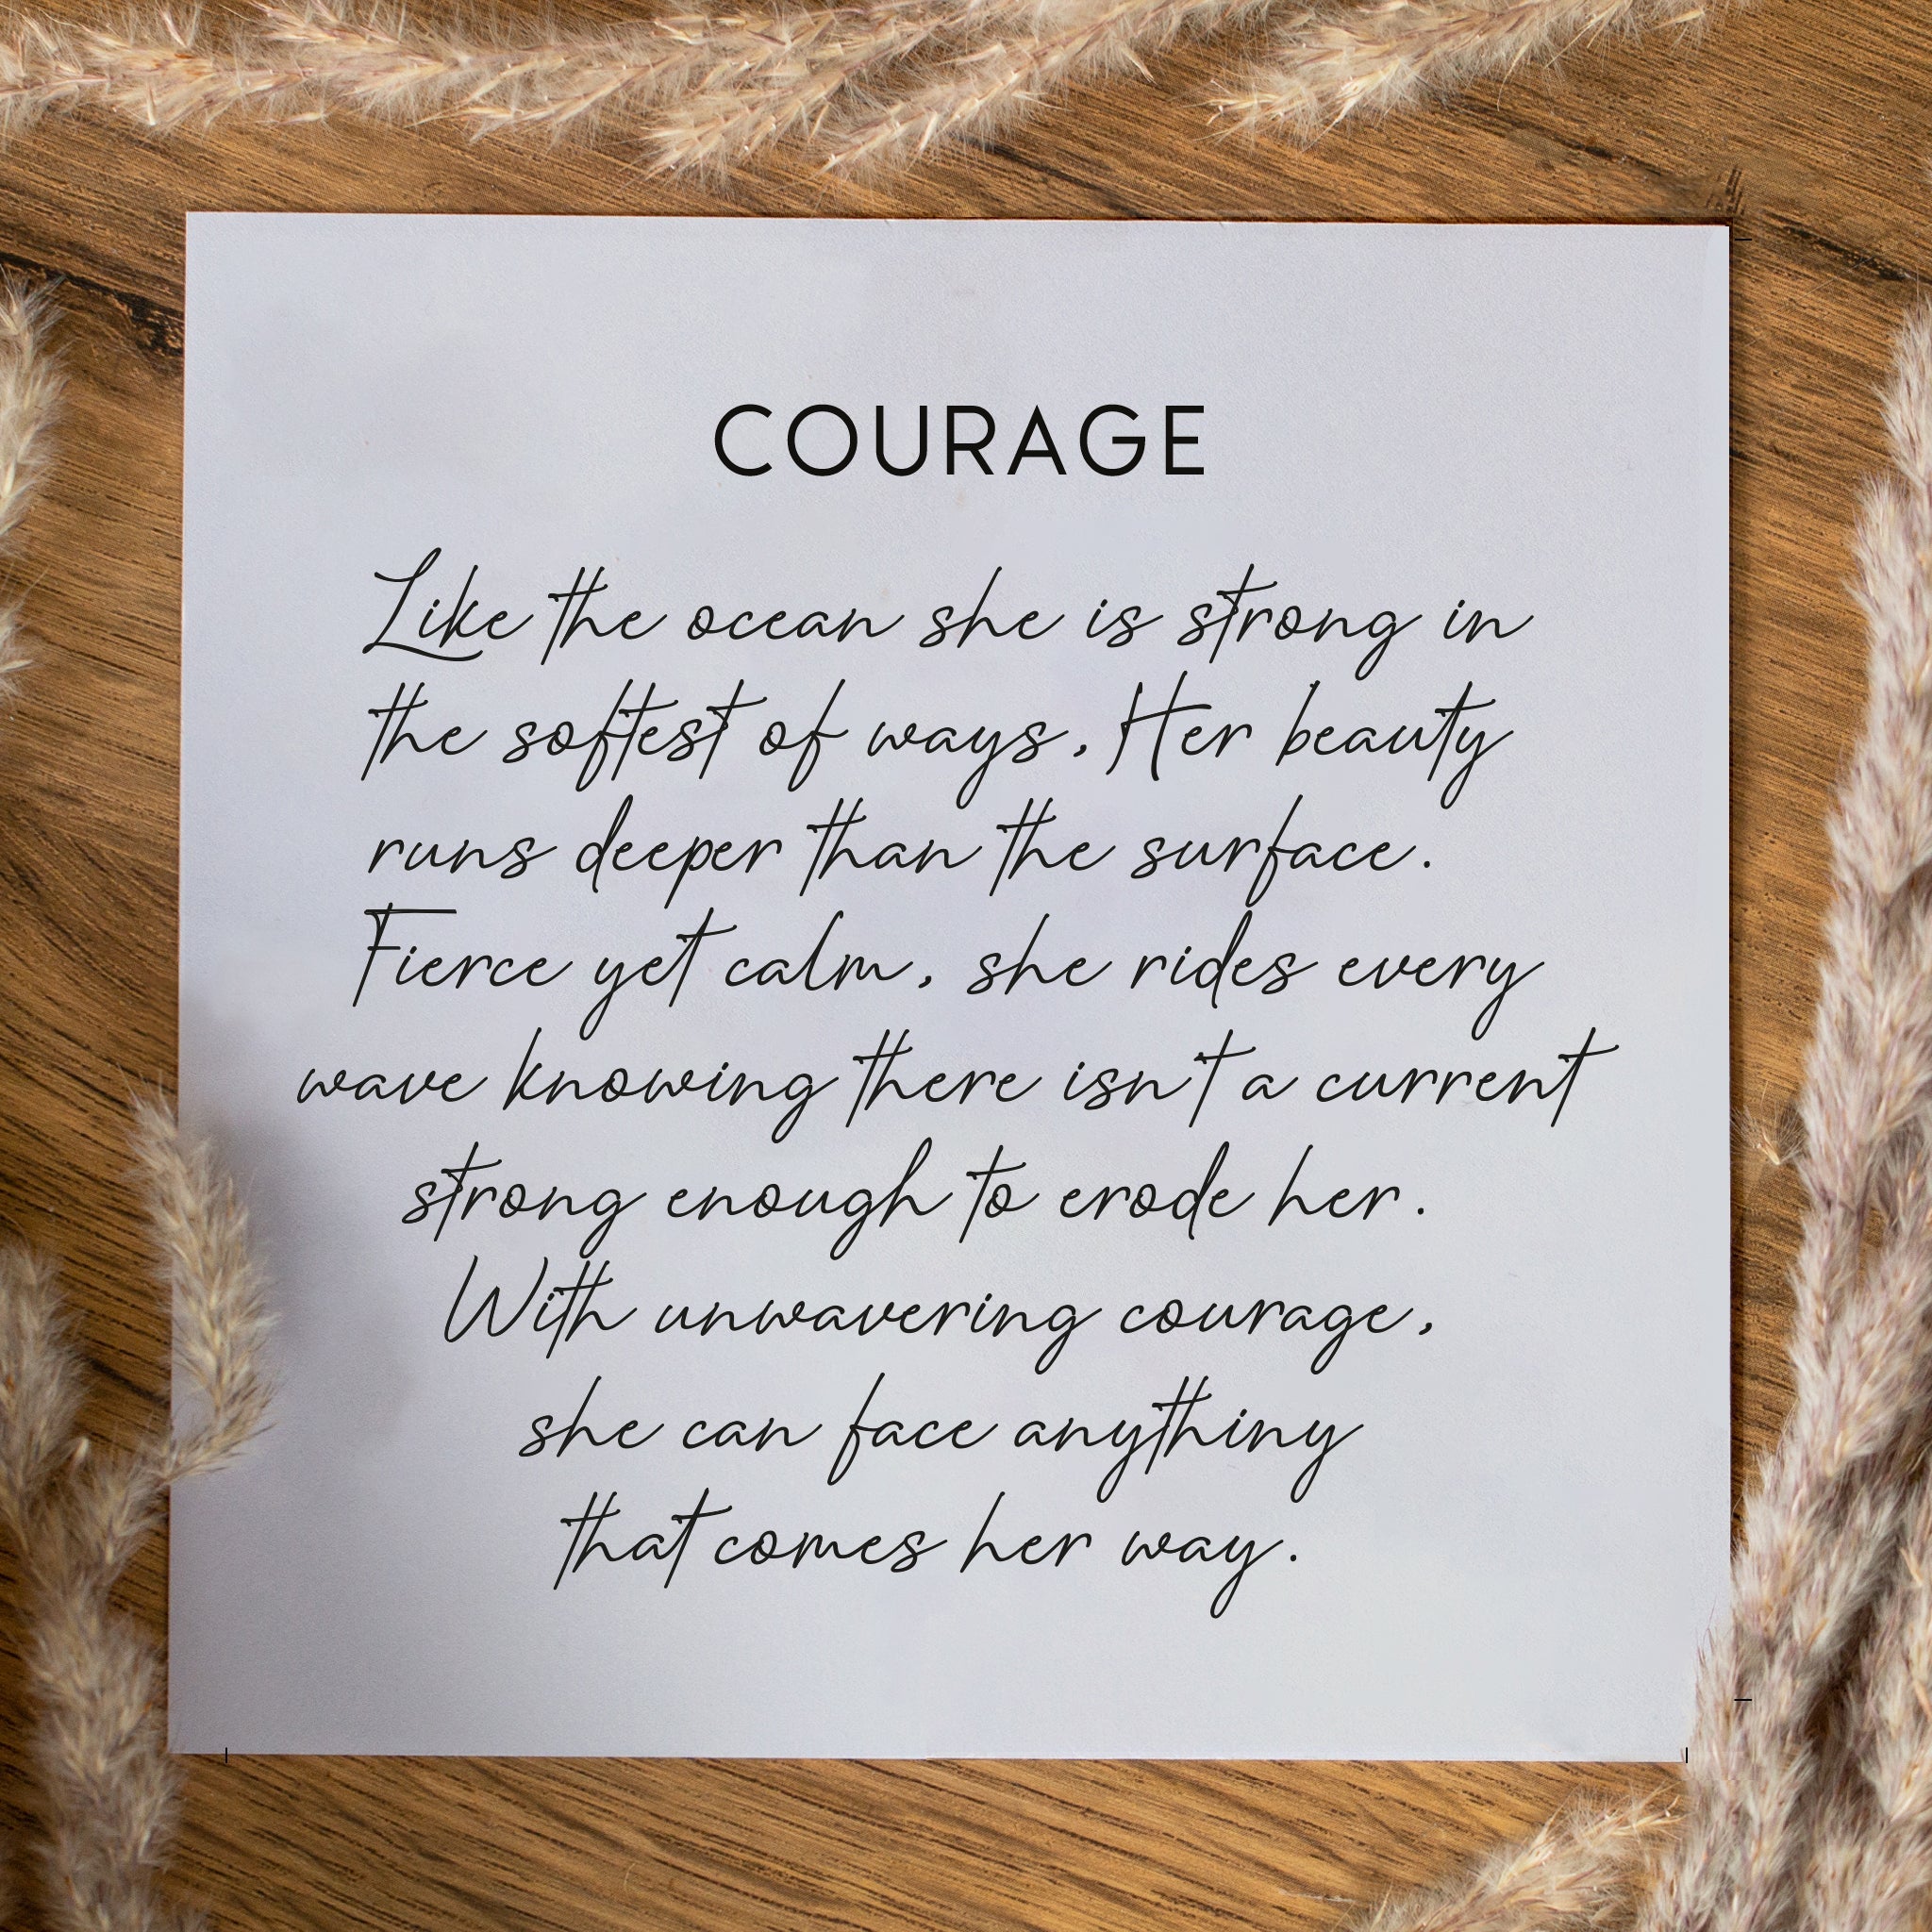 COURAGE
Like the ocean she is strong in
the softest of ways, Her beauty
runs deeper than the surface.
Fierce yet calm, she rides every
wave knowing there isn't a current
strong enough to erode her.
With unwavering courage,
she can face anythiny
that comes her way.